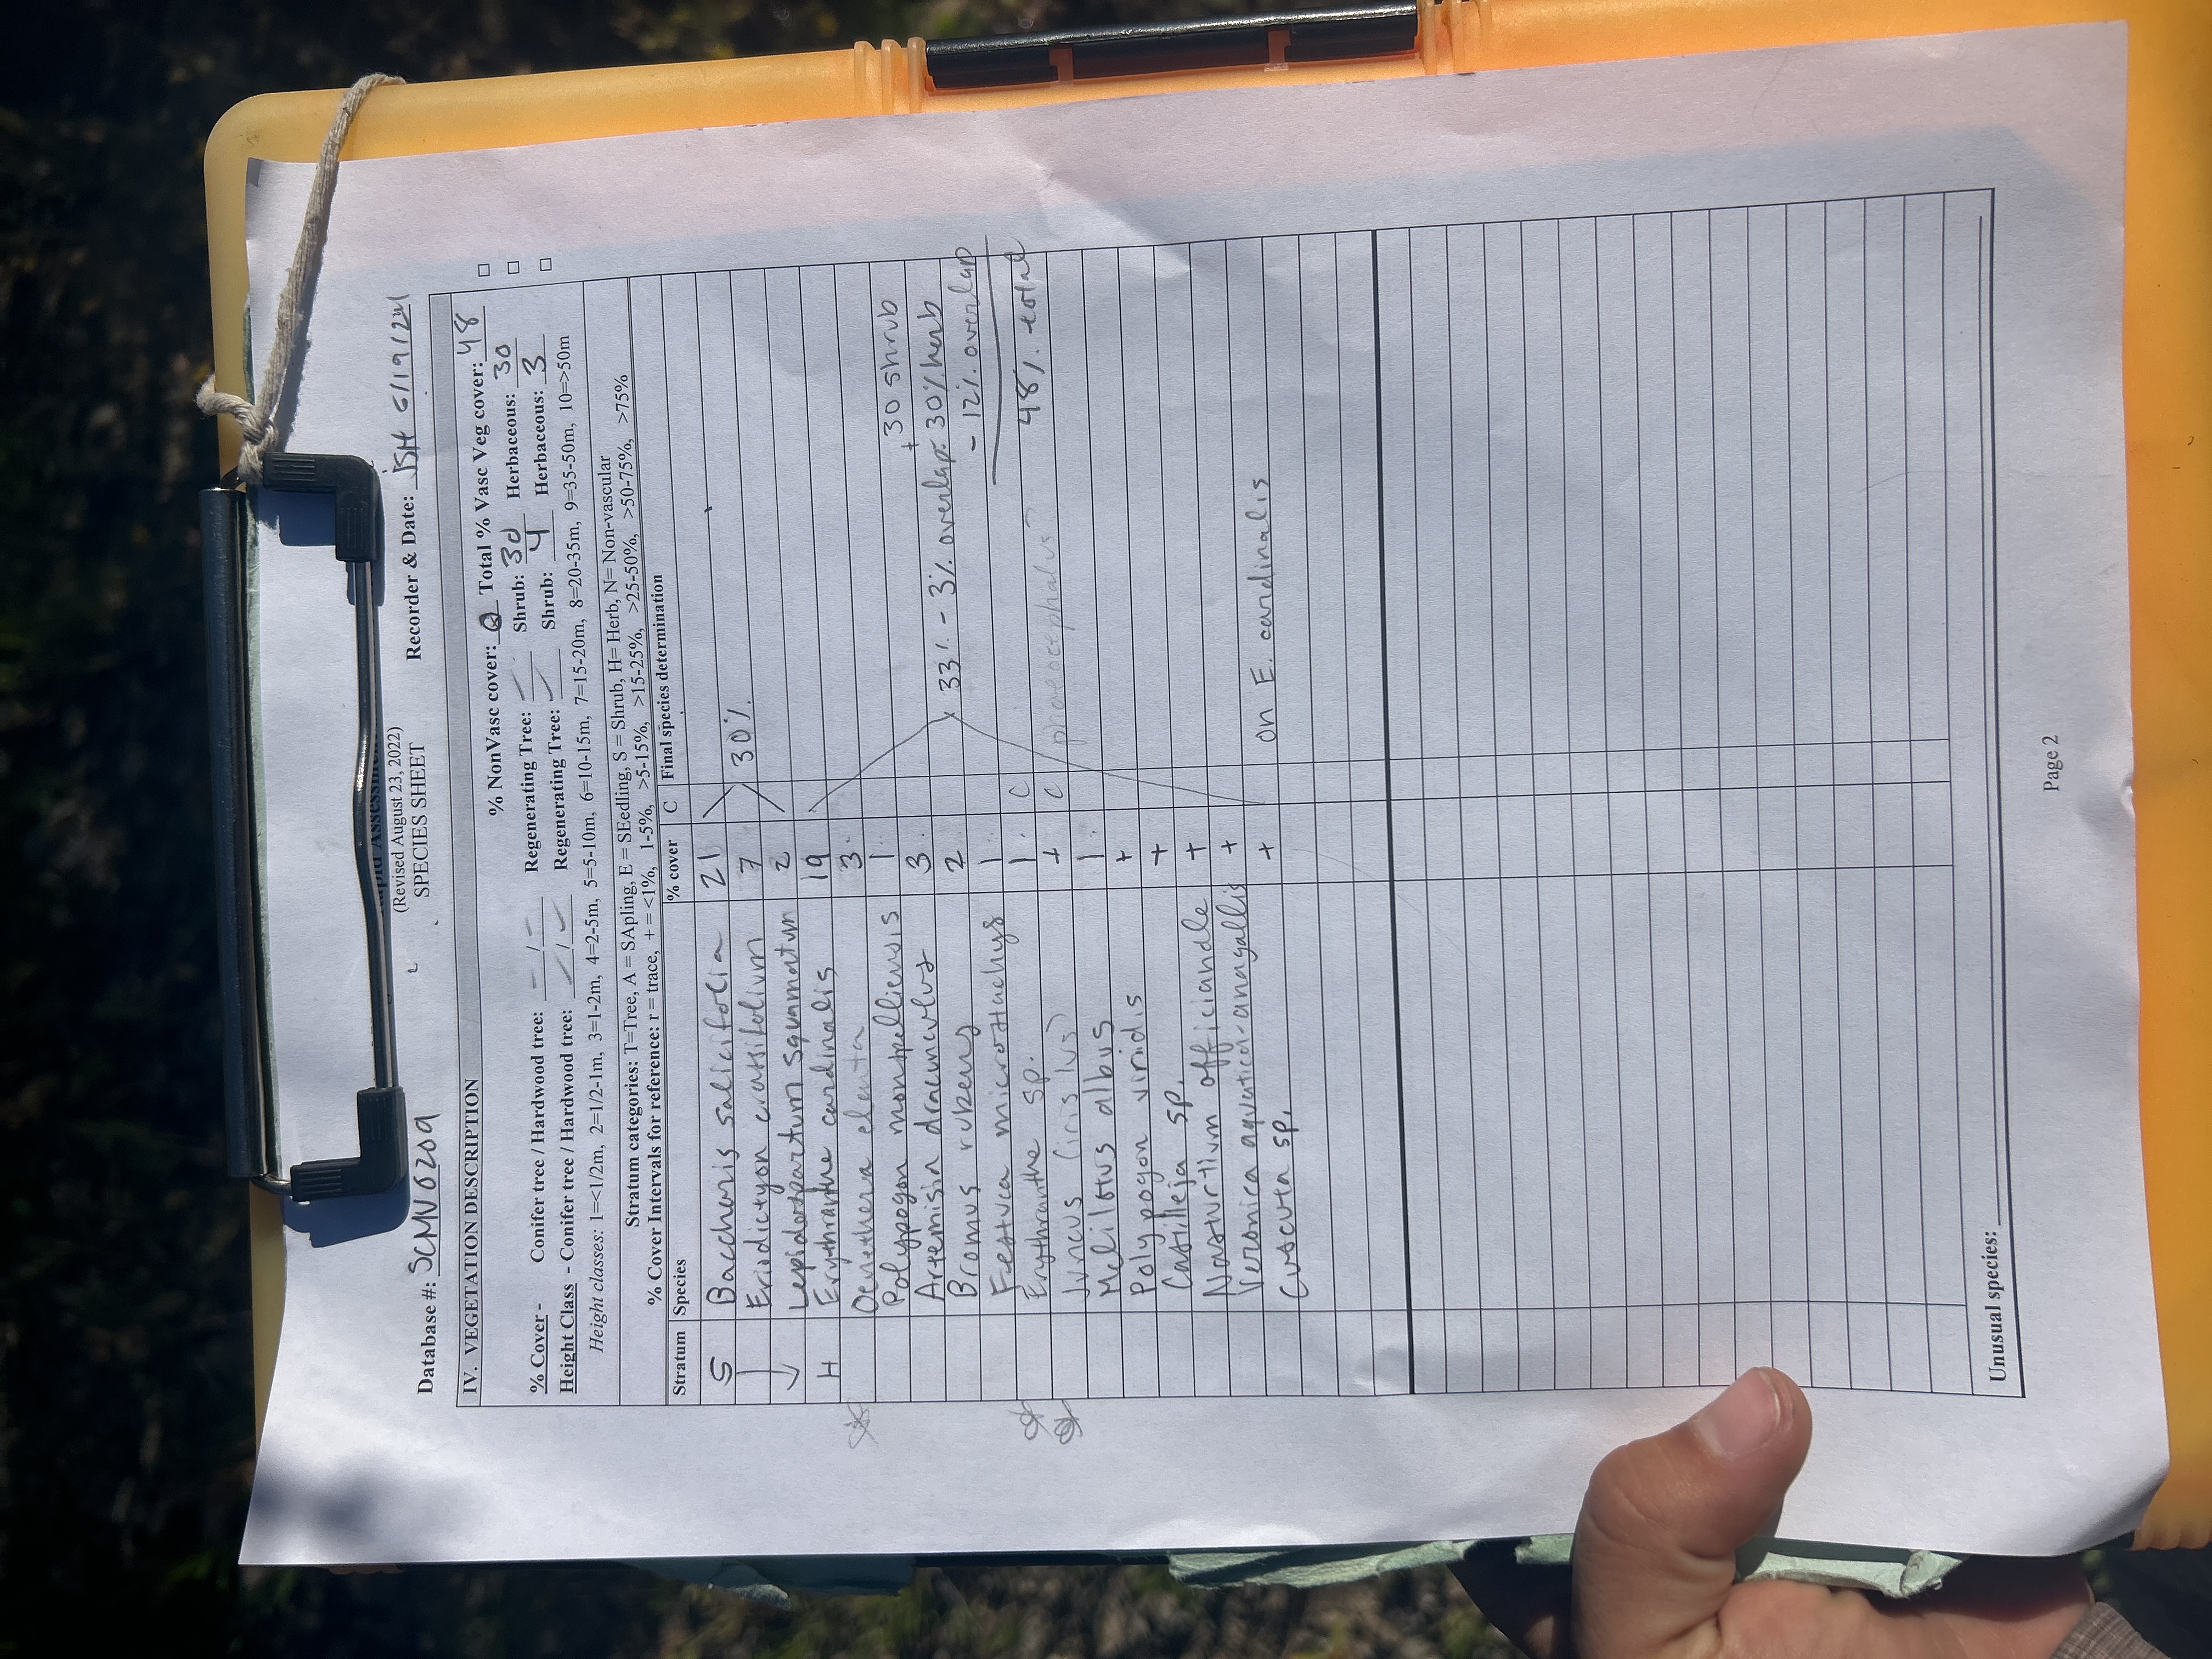 Rapid Assessment
(Revised August 23, 2022)
SPECIES SHEET
Database #: SCMV0209 Recorder & Date: JSH 6/19/24
IV. VEGETATION DESCRIPTION
% NonVasc cover: 0 Total % Vasc Veg cover: 48
% Cover - Conifer tree / Hardwood tree: - / - Regenerating Tree: - Shrub: 30 Herbaceous: 30
Height Class - Conifer tree / Hardwood tree: - / - Regenerating Tree: - Shrub: 4 Herbaceous: 3
Height classes: 1=<1/2m, 2=1/2-1m, 3=1-2m, 4=2-5m, 5=5-10m, 6=10-15m, 7=15-20m, 8=20-35m, 9=35-50m, 10=>50m
Stratum categories: T=Tree, A = SApling, E = SEedling, S = Shrub, H= Herb, N= Non-vascular
% Cover Intervals for reference: r = trace, + = <1%, 1-5%, >5-15%, >15-25%, >25-50%, >50-75%, >75%
Stratum Species % cover C Final species determination
S Baccharis salicifolia 21
Eriodictyon crassifolium 7 30%
Lepidospartum squamatum 2
H Erythranthe cardinalis 19
Oenothera elata 3
Polypogon monspeliensis 1 + 30 shrub
Artemisia dracunculus 3 33% - 3% overlap: 30% herb
Bromus rubens 2 - 12% overlap
Festuca microstachys 1
Erythranthe sp. 1 C 48% total
Juncus (iris lvs) + C (phaeocephalus?)
Melilotus albus 1
Polypogon viridis +
Castilleja sp. +
Nasturtium officiandle +
Veronica aquatica-anagallis +
Cuscuta sp. + on E. cardinalis
Unusual species:
Page 2